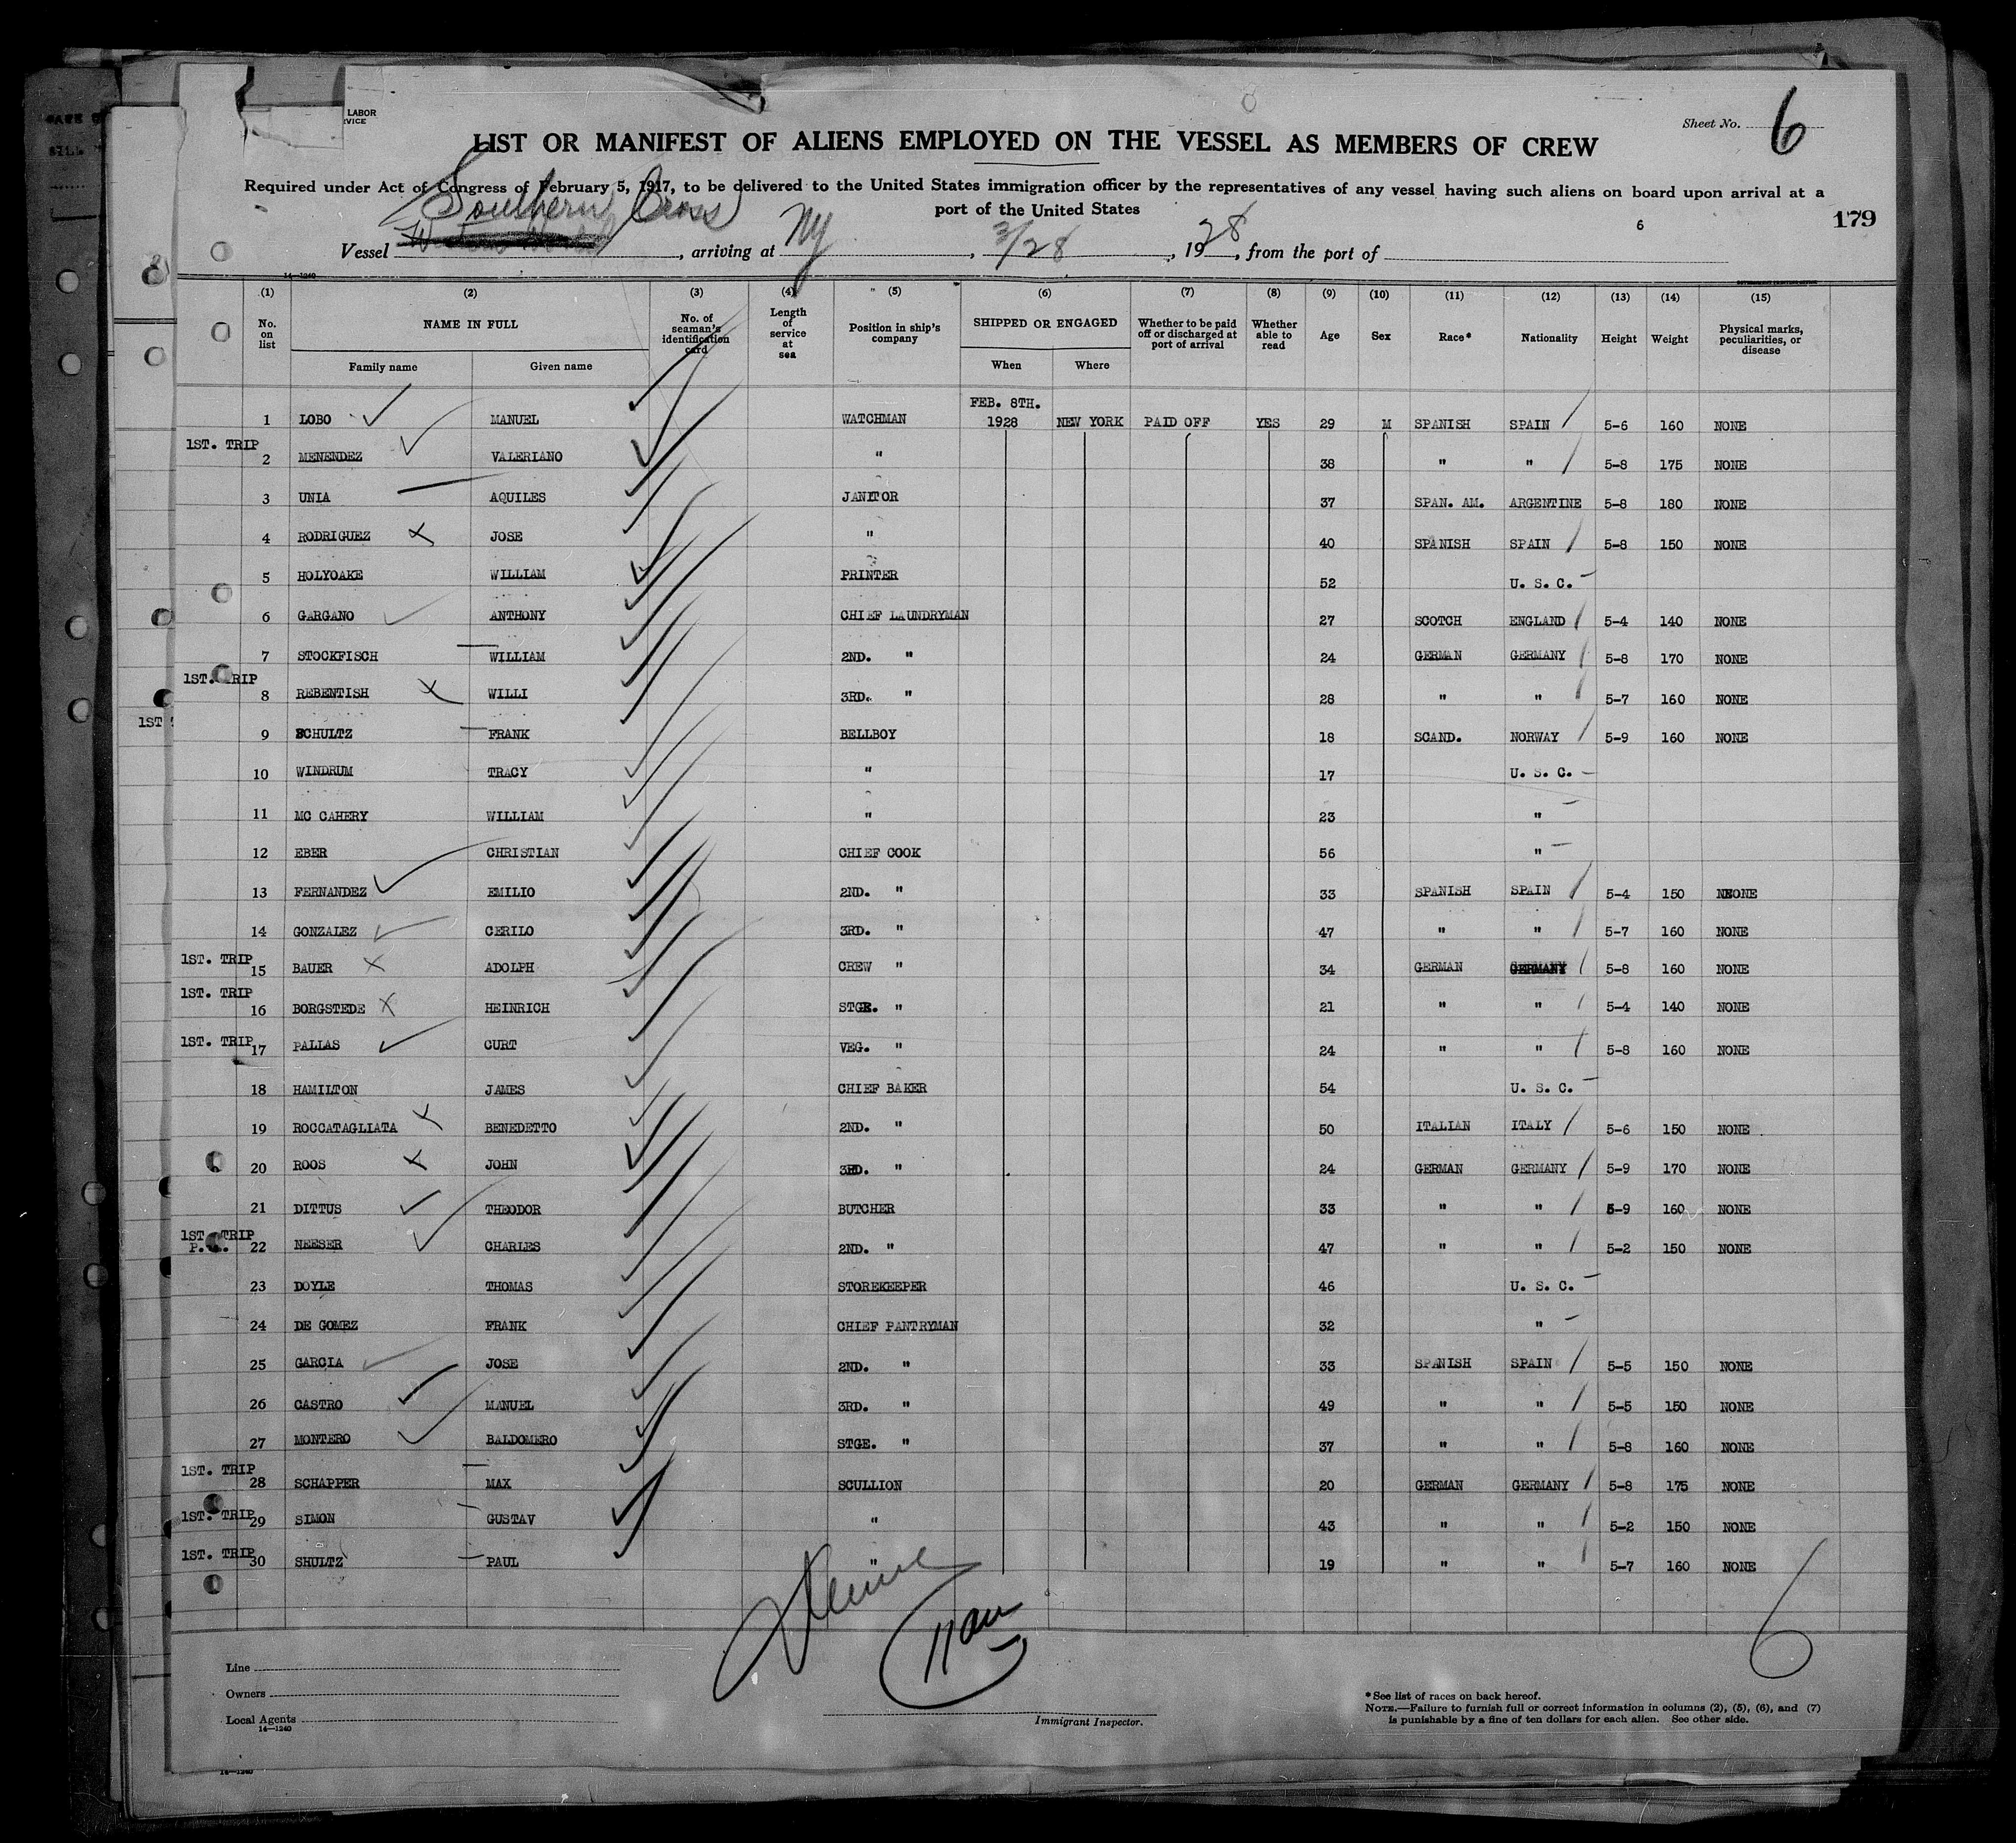 LABOR
RVICE
Sheet No. 6
LIST OR MANIFEST OF ALIENS EMPLOYED ON THE VESSEL AS MEMBERS OF CREW
Required under Act of Congress of February 5, 1917, to be delivered to the United States immigration officer by the representatives of any vessel having such aliens on board upon arrival at a
port of the United States
6
179
Southern Cross
Vessel , arriving at NY , 3/28 , 1928 , from the port of
14—1240
(1) (2) (3) (4) (5) (6) (7) (8) (9) (10) (11) (12) (13) (14) (15)
No. on list NAME IN FULL No. of seaman's identification card Length of service at sea Position in ship's company SHIPPED OR ENGAGED Whether to be paid off or discharged at port of arrival Whether able to read Age Sex Race* Nationality Height Weight Physical marks, peculiarities, or disease
Family name Given name When Where
FEB. 8TH.
1 LOBO MANUEL WATCHMAN 1928 NEW YORK PAID OFF YES 29 M SPANISH SPAIN 5-6 160 NONE
1ST. TRIP
2 MENENDEZ VALERIANO " 38 " " 5-8 175 NONE
3 UNIA AQUILES JANITOR 37 SPAN. AM. ARGENTINE 5-8 180 NONE
4 RODRIGUEZ JOSE " 40 SPANISH SPAIN 5-8 150 NONE
5 HOLYOAKE WILLIAM PRINTER 52 U. S. C.
6 GARGANO ANTHONY CHIEF LAUNDRYMAN 27 SCOTCH ENGLAND 5-4 140 NONE
7 STOCKFISCH WILLIAM 2ND. " 24 GERMAN GERMANY 5-8 170 NONE
1ST. TRIP
8 REBENTISH WILLI 3RD. " 28 " " 5-7 160 NONE
1ST
9 SCHULTZ FRANK BELLBOY 18 SCAND. NORWAY 5-9 160 NONE
10 WINDRUM TRACY " 17 U. S. C.
11 MC CAHERY WILLIAM " 23 "
12 EBER CHRISTIAN CHIEF COOK 56 "
13 FERNANDEZ EMILIO 2ND. " 33 SPANISH SPAIN 5-4 150 NONE
14 GONZALEZ CERILO 3RD. " 47 " " 5-7 160 NONE
1ST. TRIP
15 BAUER ADOLPH CREW " 34 GERMAN GERMANY 5-8 160 NONE
1ST. TRIP
16 BORGSTEDE HEINRICH STGE. " 21 " " 5-4 140 NONE
1ST. TRIP
17 PALLAS CURT VEG. " 24 " " 5-8 160 NONE
18 HAMILTON JAMES CHIEF BAKER 54 U. S. C.
19 ROCCATAGLIATA BENEDETTO 2ND. " 50 ITALIAN ITALY 5-6 150 NONE
20 ROOS JOHN 3RD. " 24 GERMAN GERMANY 5-9 170 NONE
21 DITTUS THEODOR BUTCHER 33 " " 5-9 160 NONE
1ST. TRIP
22 NEESER CHARLES 2ND. " 47 " " 5-2 150 NONE
23 DOYLE THOMAS STOREKEEPER 46 U. S. C.
24 DE GOMEZ FRANK CHIEF PANTRYMAN 32 "
25 GARCIA JOSE 2ND. " 33 SPANISH SPAIN 5-5 150 NONE
26 CASTRO MANUEL 3RD. " 49 " " 5-5 150 NONE
27 MONTERO BALDOMERO STGE. " 37 " " 5-8 160 NONE
1ST. TRIP
28 SCHAPPER MAX SCULLION 20 GERMAN GERMANY 5-8 175 NONE
1ST. TRIP
29 SIMON GUSTAV " 43 " " 5-2 150 NONE
1ST. TRIP
30 SHULTZ PAUL " 19 " " 5-7 160 NONE
6
Line
Owners
Local Agents
14—1240
Immigrant Inspector.
*See list of races on back hereof.
NOTE.—Failure to furnish full or correct information in columns (2), (5), (6), and (7)
is punishable by a fine of ten dollars for each alien. See other side.
14—1240